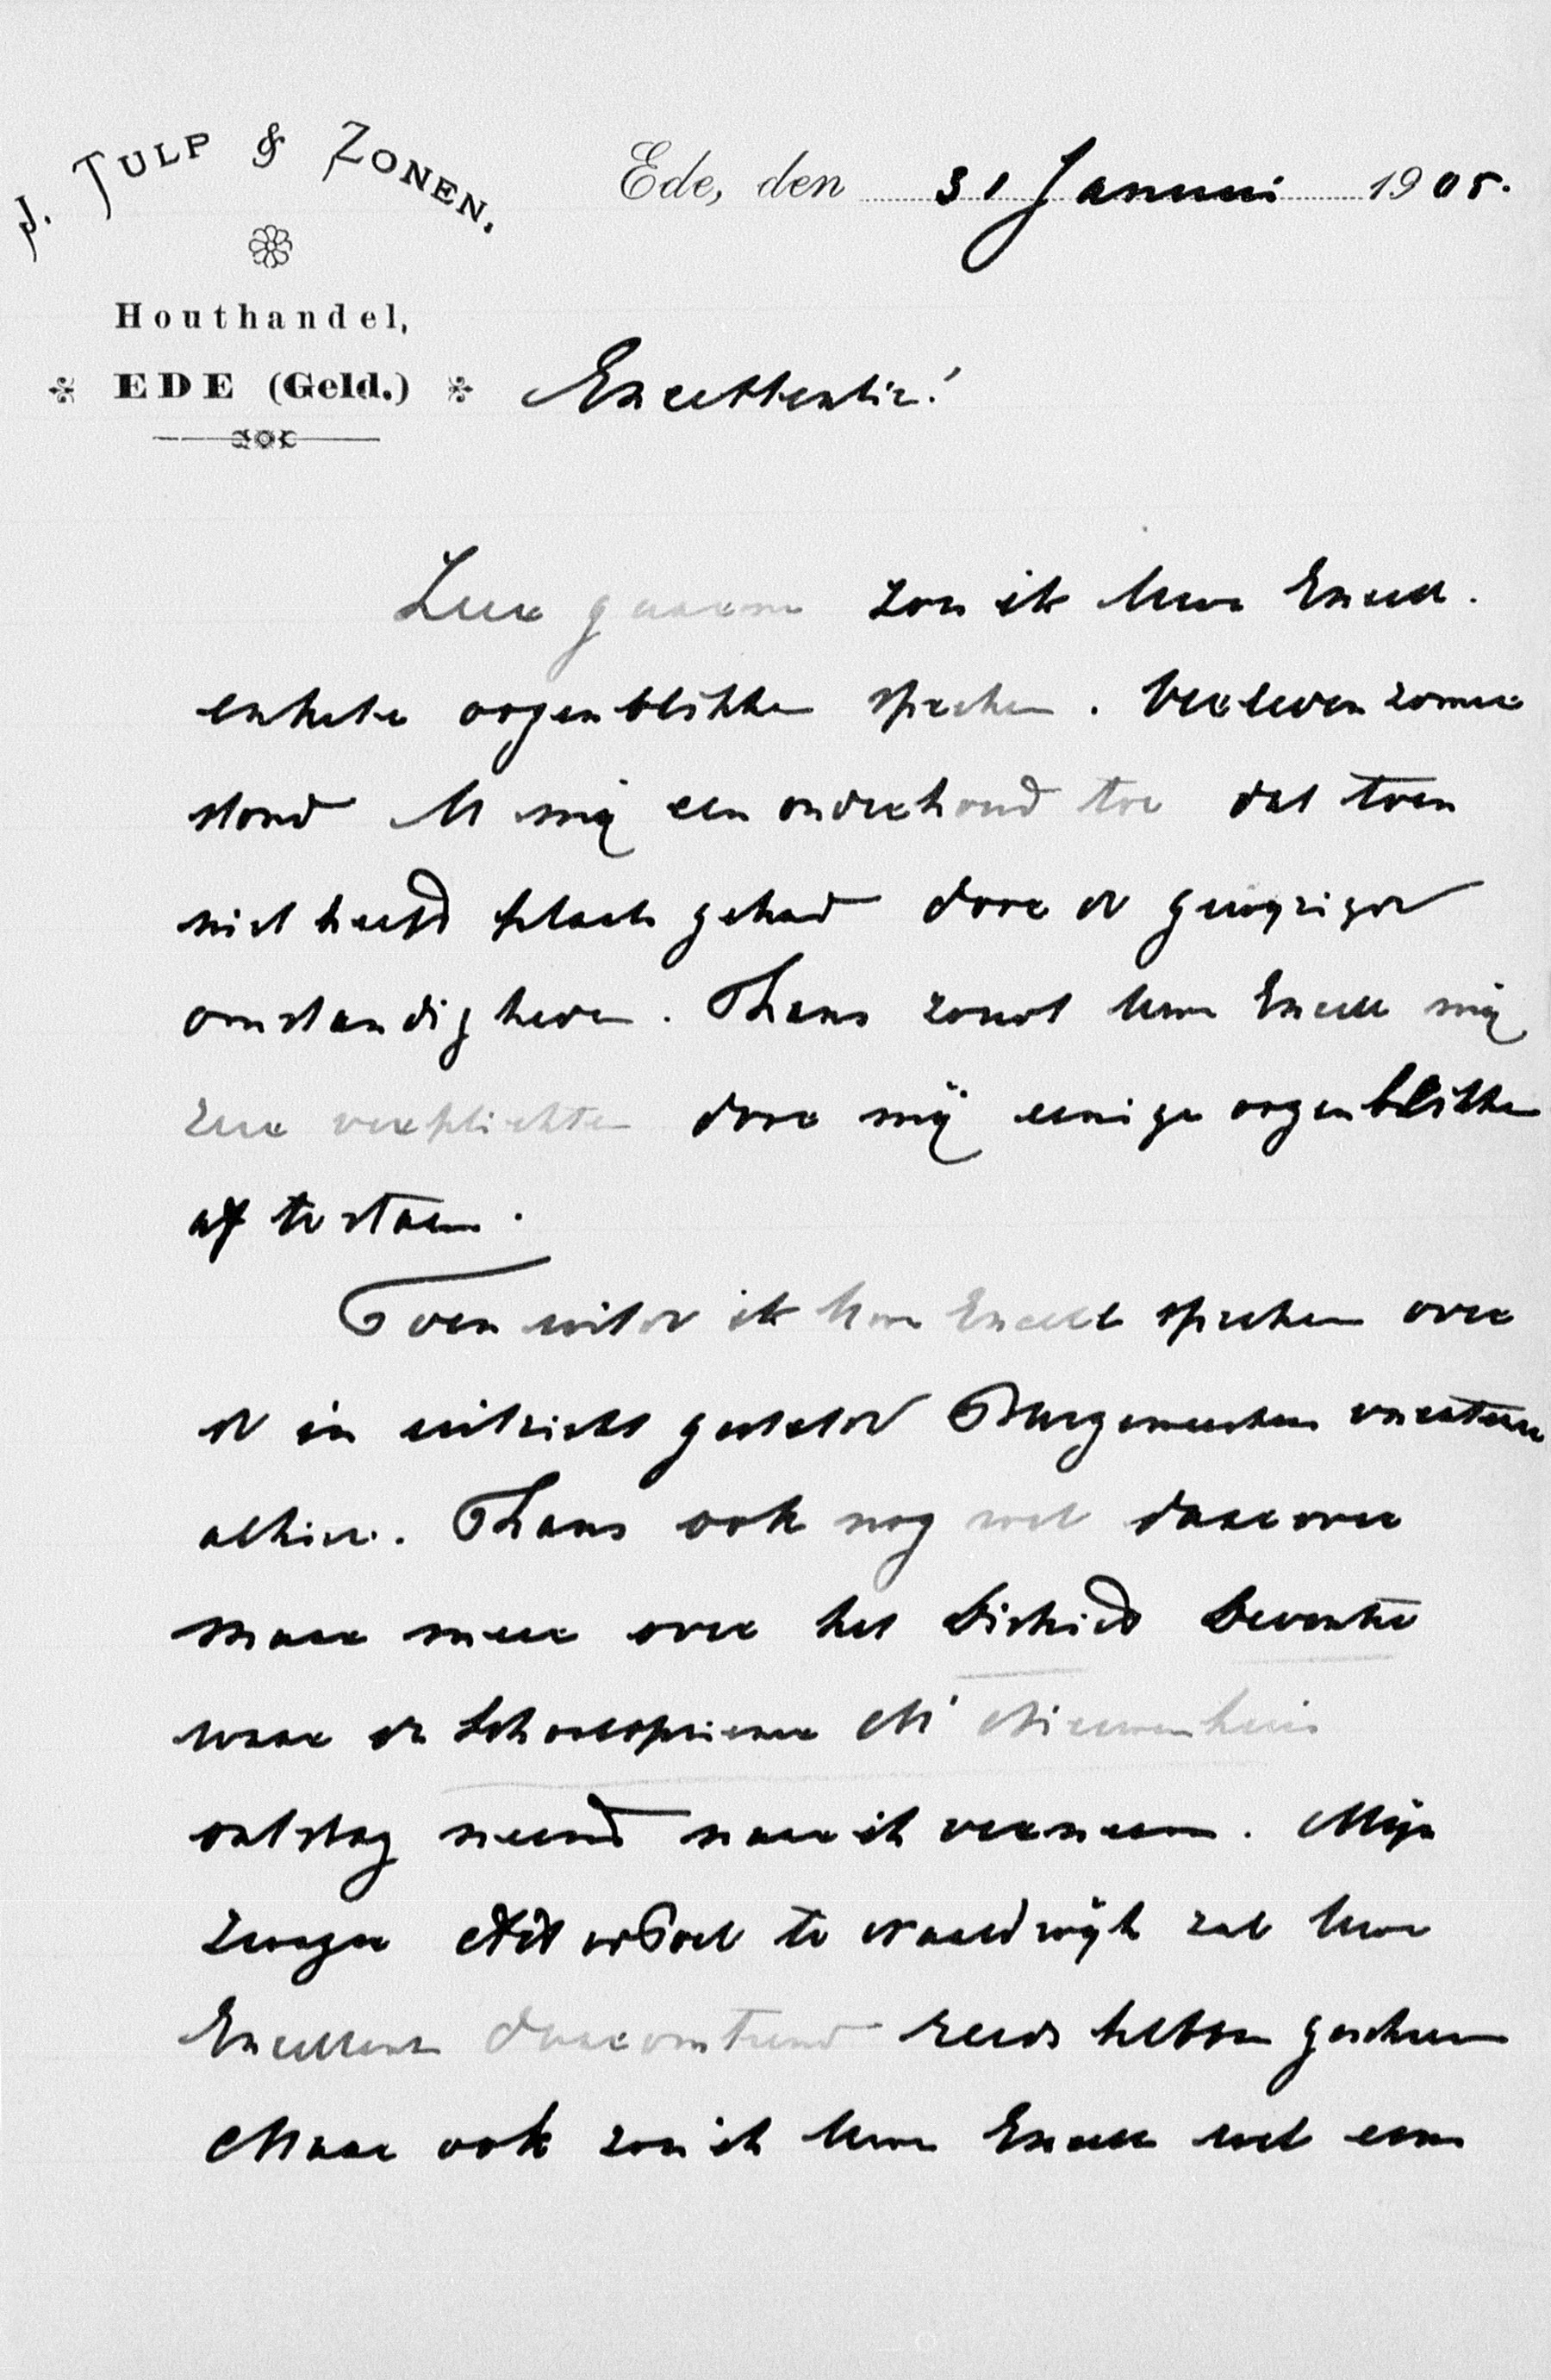 J. TULP & ZONEN.
Houthandel,
EDE (Geld.)
Ede, den 31 Januari 1905.
Excellentie!
Zeer gaarne zou ik Uwe Excell.
enkele oogenblikken spreken. Verleden zomer
stond U mij een onderhoud toe dat toen
niet heeft plaats gehad door de gewijzigde
omstandigheden. Thans zoudt Uwe Excell mij
zeer verplichten door mij eenige oogenblikken
af te staan.
Toen wilde ik Uwe Excell spreken over
de in uitzicht gestelde Burgemeesters vacature
alhier. Thans ook nog wel daarover
maar meer over het District Deventer
waar de Schoolopziener Mr Nieuwenhuis
ontslag neemd naar ik verneem. Mijn
zwager te Naaldwijk zal Uwe
Excellent daaromtrend reeds hebben geschreven
Maar ook zou ik Uwe Excell wel eens